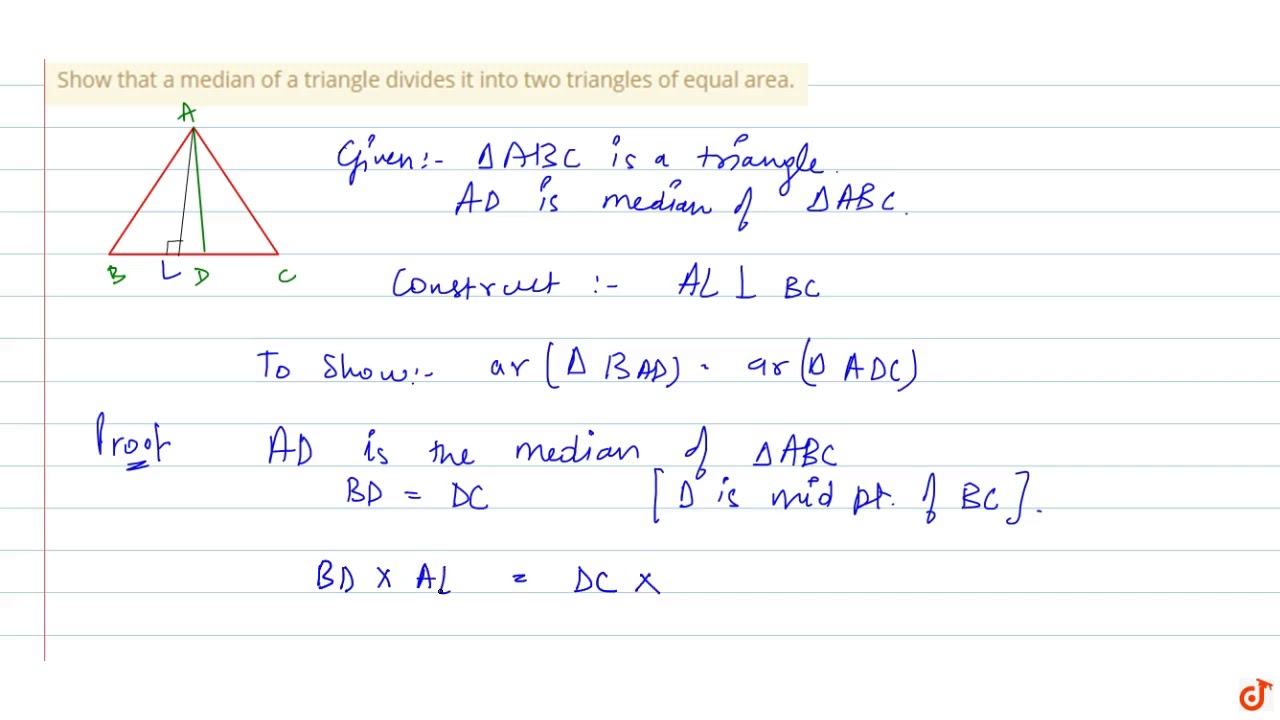 Show that a median of a triangle divides it into two triangles of equal area.
A
B L D C
Given:- ΔABC is a triangle.
AD is median of ΔABC.
Construct :- AL ⊥ BC
To Show:- ar (Δ BAD) = ar (Δ ADC)
Proof AD is the median of ΔABC
BD = DC [D is mid pt. of BC].
BD × AL = DC ×